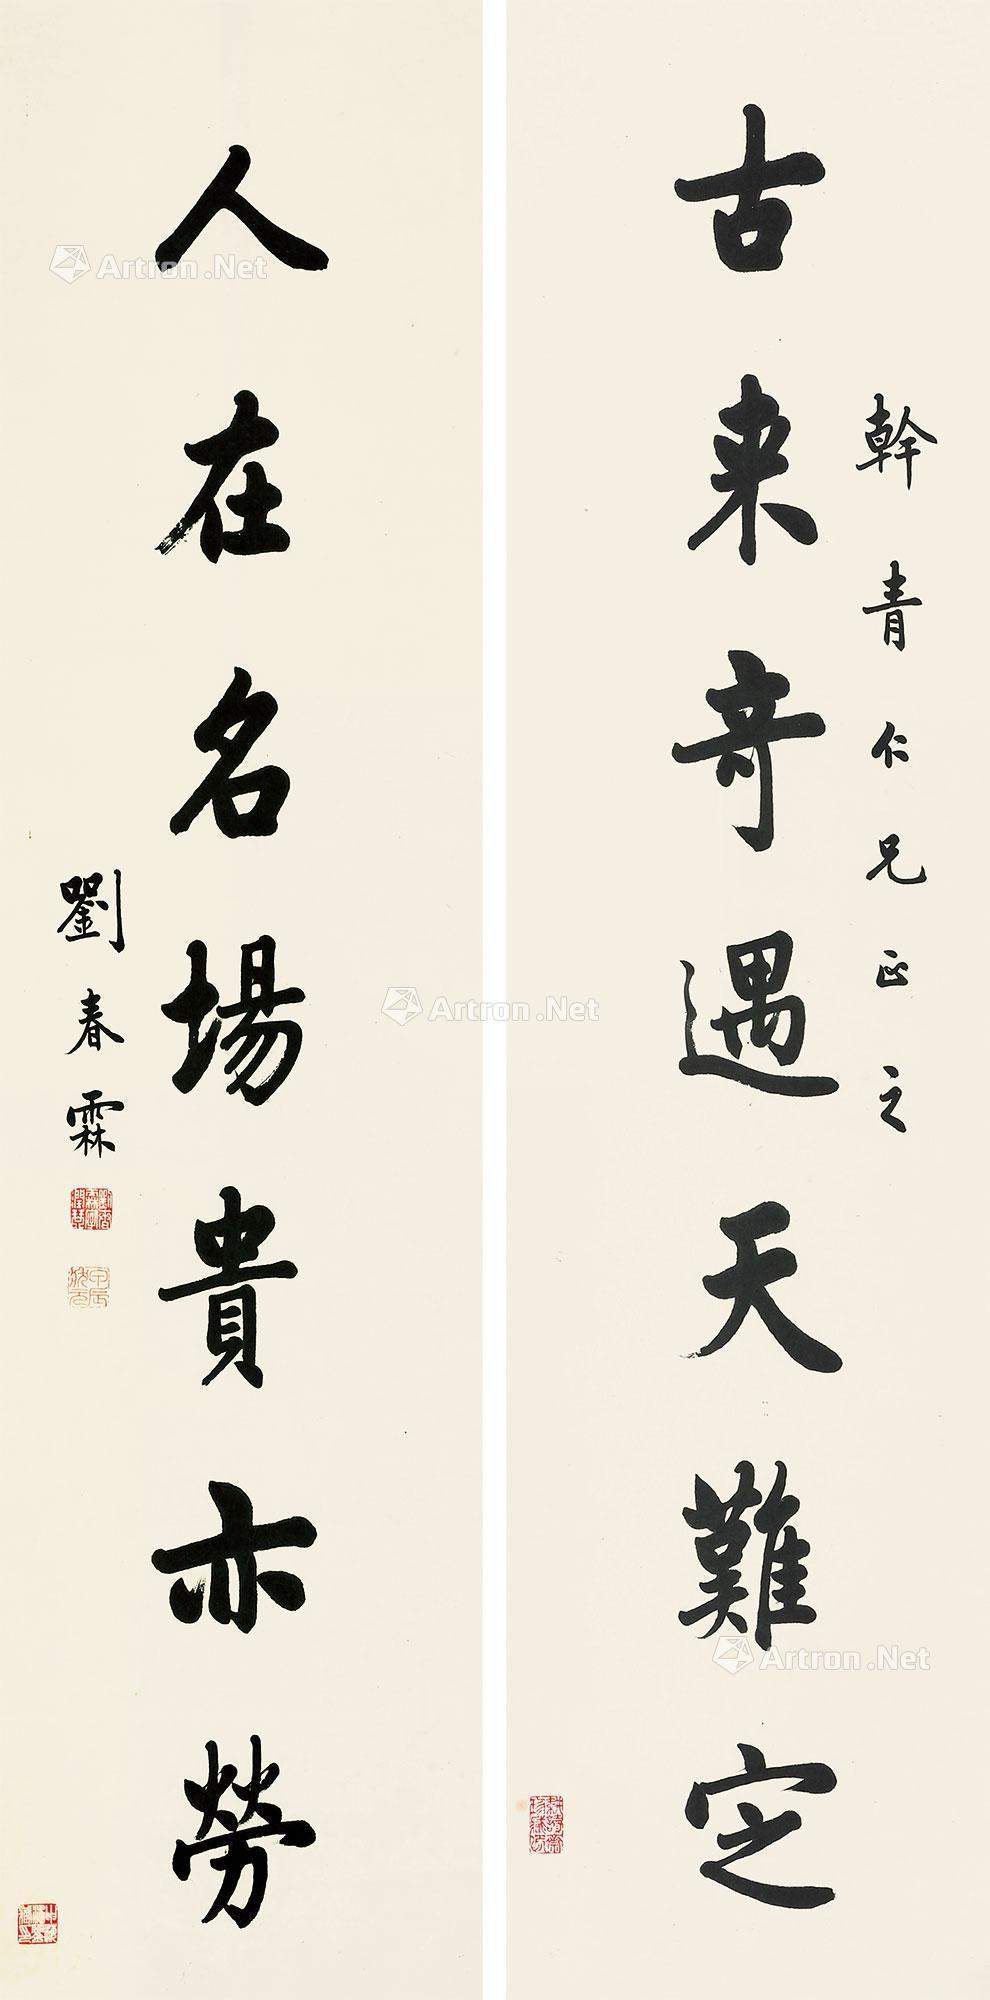 幹青仁兄正之
古来奇遇天難定
人在名場貴亦勞
劉春霖
Artron.Net
Artron.Net
Artron.Net